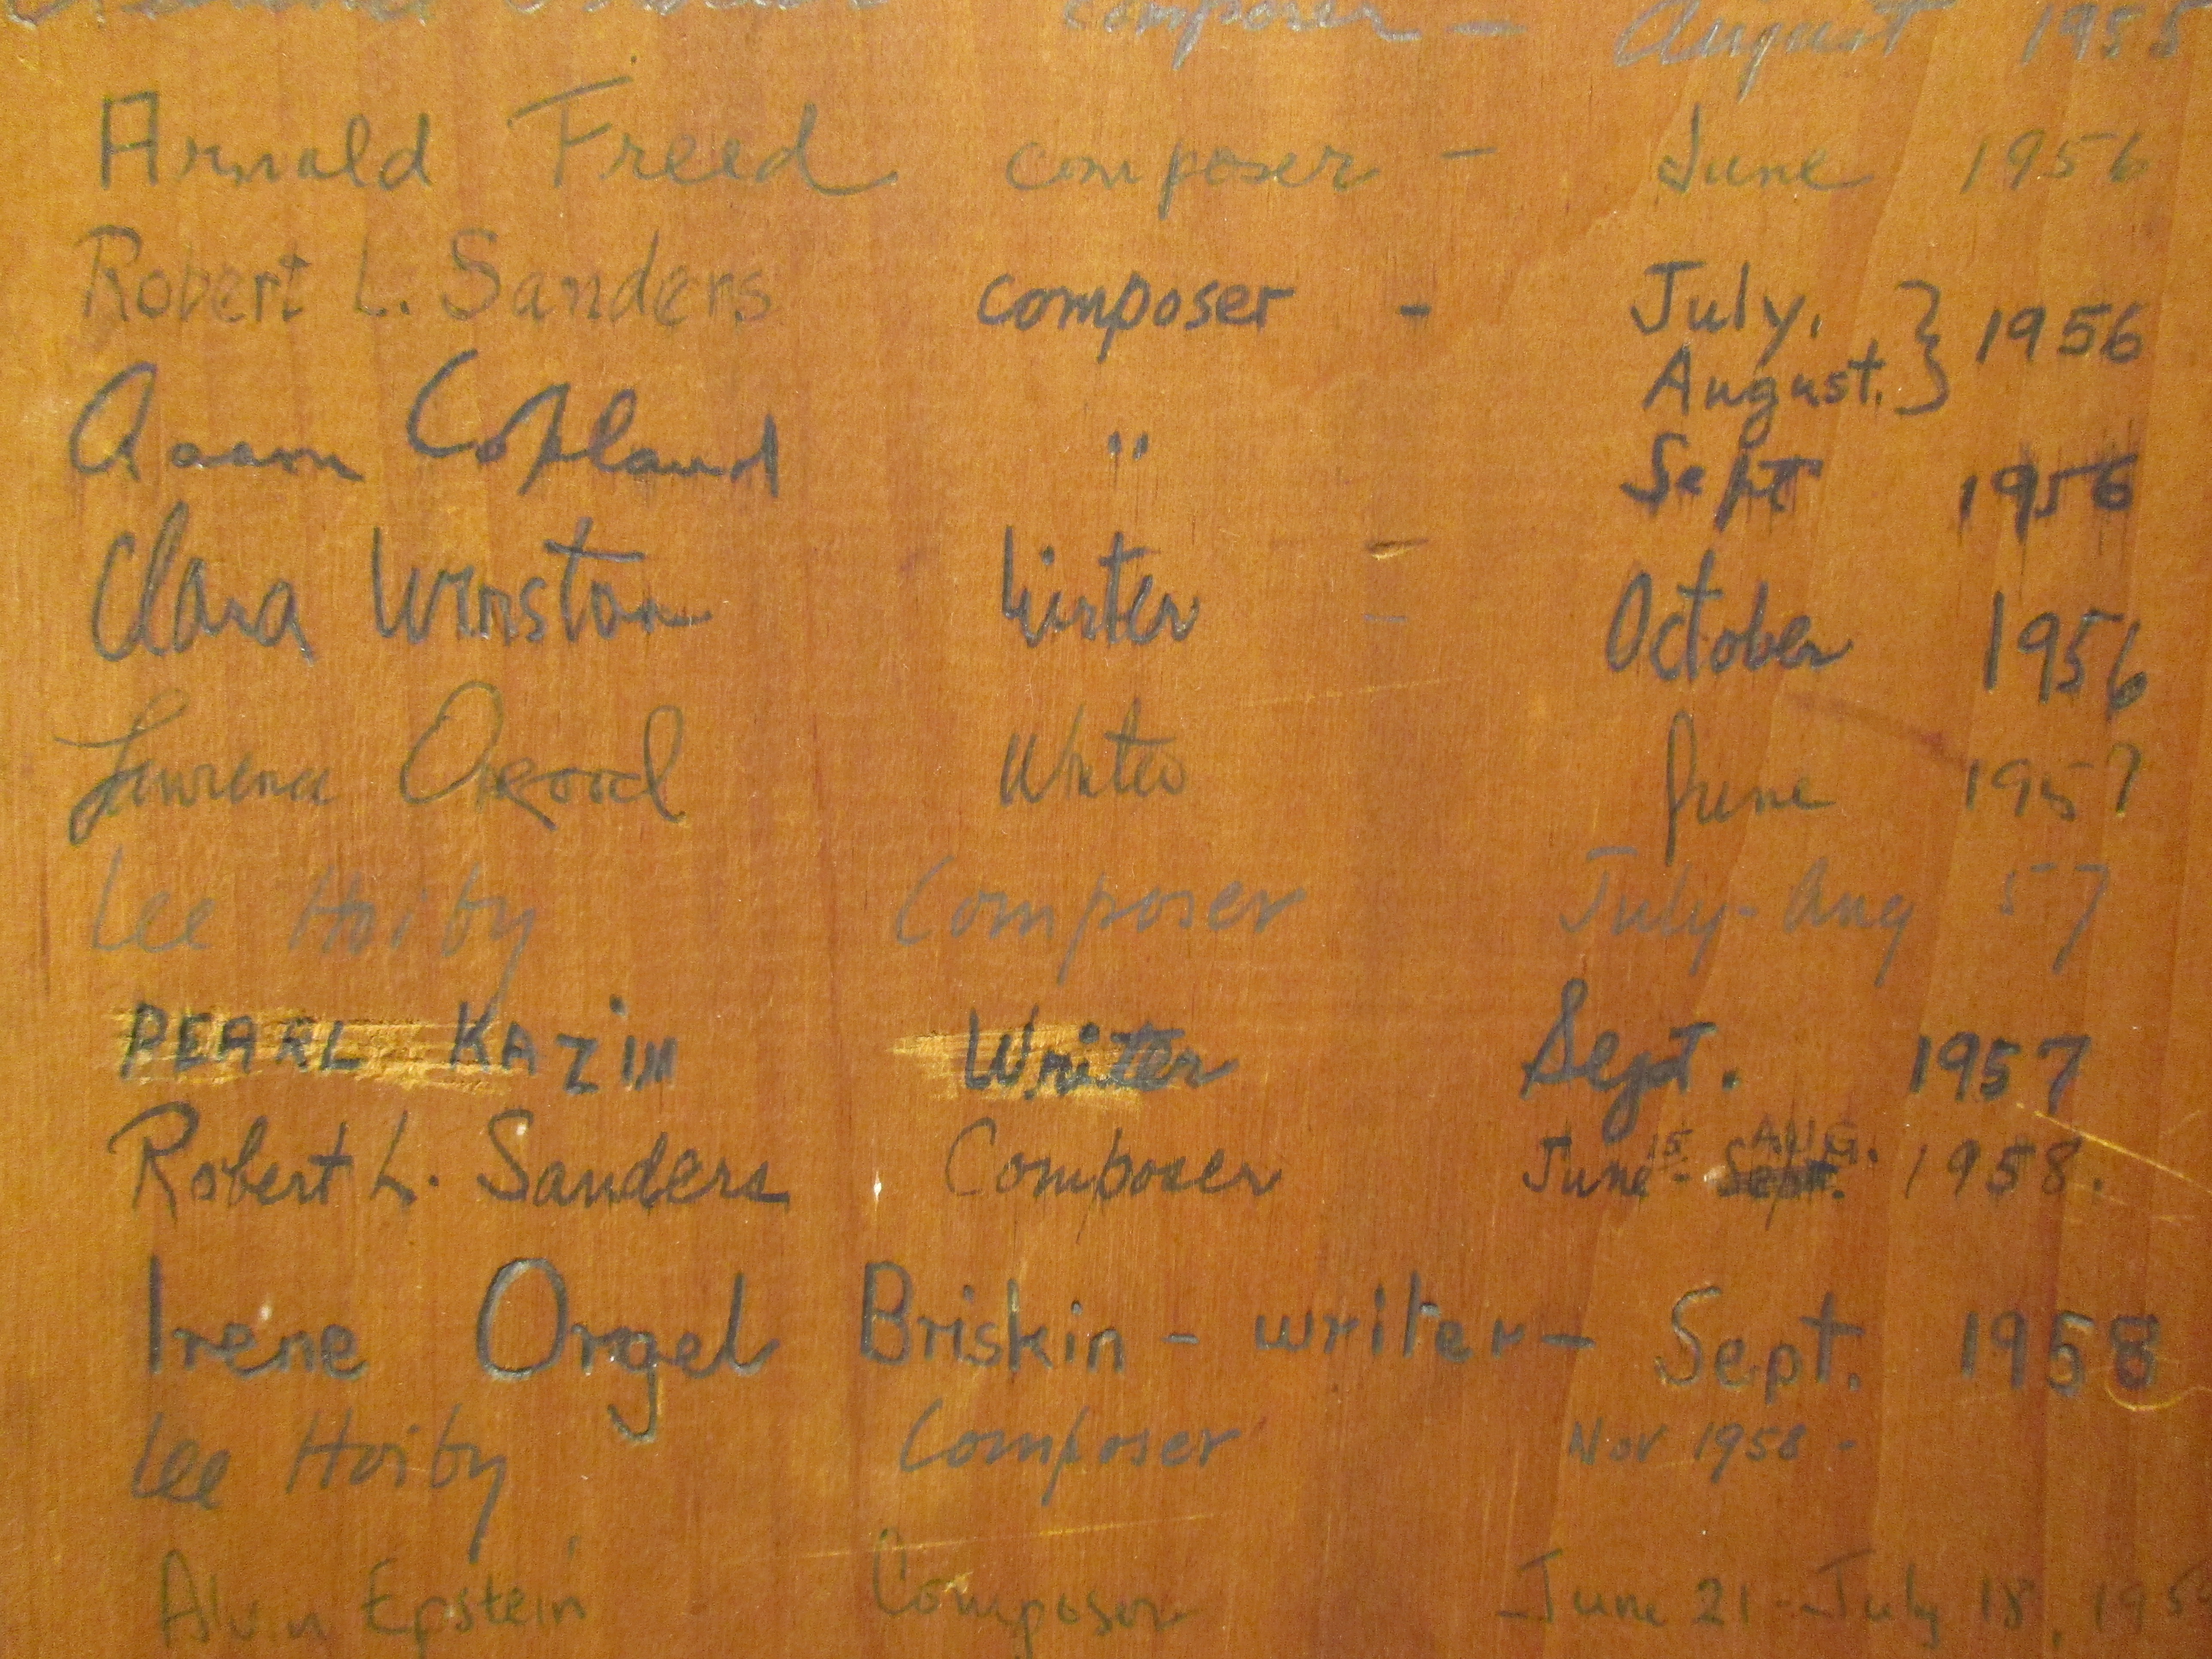 composer — August 1955
Arnold Freed composer - June 1956
Robert L. Sanders composer - July, } 1956
August.
Aaron Copland " Sept 1956
Clara Winston Writer - October 1956
Lawrence Osgood Writer June 1957
Lee Hoiby Composer July - Aug 57
PEARL KAZIN Writer Sept. 1957
Robert L. Sanders Composer June 15 - AUG. 1958.
Irene Orgel Briskin - writer - Sept. 1958
Lee Hoiby Composer Nov 1958 -
Alvin Epstein Composer June 21 - July 18,